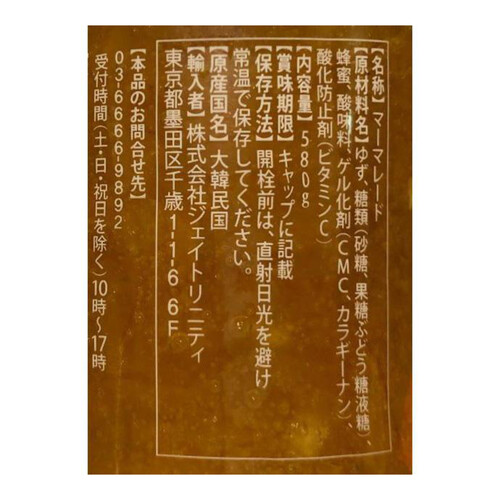 【名称】マーマレード
【原材料名】ゆず、糖類(砂糖、果糖ぶどう糖液糖)、
蜂蜜、酸味料、ゲル化剤(CMC、カラギーナン)、
酸化防止剤(ビタミンC)
【内容量】580g
【賞味期限】キャップに記載
【保存方法】開栓前は、直射日光を避け
常温で保存してください。
【原産国名】大韓民国
【輸入者】株式会社ジェイトリニティ
東京都墨田区千歳1-1-6 6F
【本品のお問合せ先】
03-6666-9892
受付時間(土・日・祝日を除く)10時〜17時